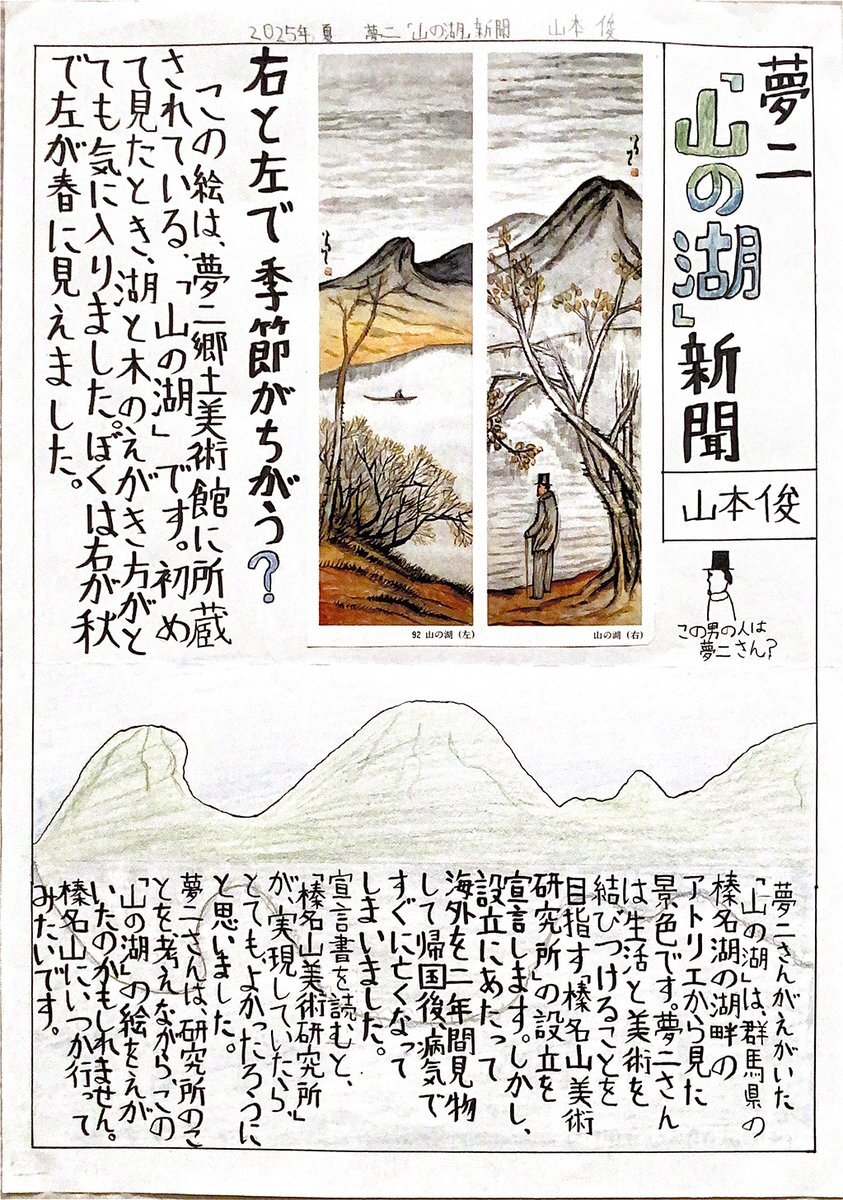 2025年夏 夢二「山の湖」新聞 山本 俊
夢二
「山の湖」
新聞
山本俊
この男の人は
夢二さん?
山の湖(右)
92 山の湖(左)
右と左で季節がちがう?
この絵は、夢二郷土美術館に所蔵
されている、「山の湖」です。初め
て見たとき、湖と木のえがき方がと
ても気に入りました。ぼくは右が秋
で左が春に見えました。
夢二さんがえがいた
「山の湖」は、群馬県の
榛名湖の湖畔の
アトリエから見た
景色です。夢二さん
は生活と美術を
結びつけることを
目指す「榛名山美術
研究所」の設立を
宣言します。しかし、
設立にあたって
海外を二年間見物
して帰国後、病気で
すぐに亡くなって
しまいました。
宣言書を読むと、
「榛名山美術研究所」
が、実現していたら、
とても、よかったろうに
と思いました。
夢二さんは、研究所のこ
とを、考えながら、この
「山の湖」の絵をえが
いたのかもしれません。
榛名山にいつか行って
みたいです。